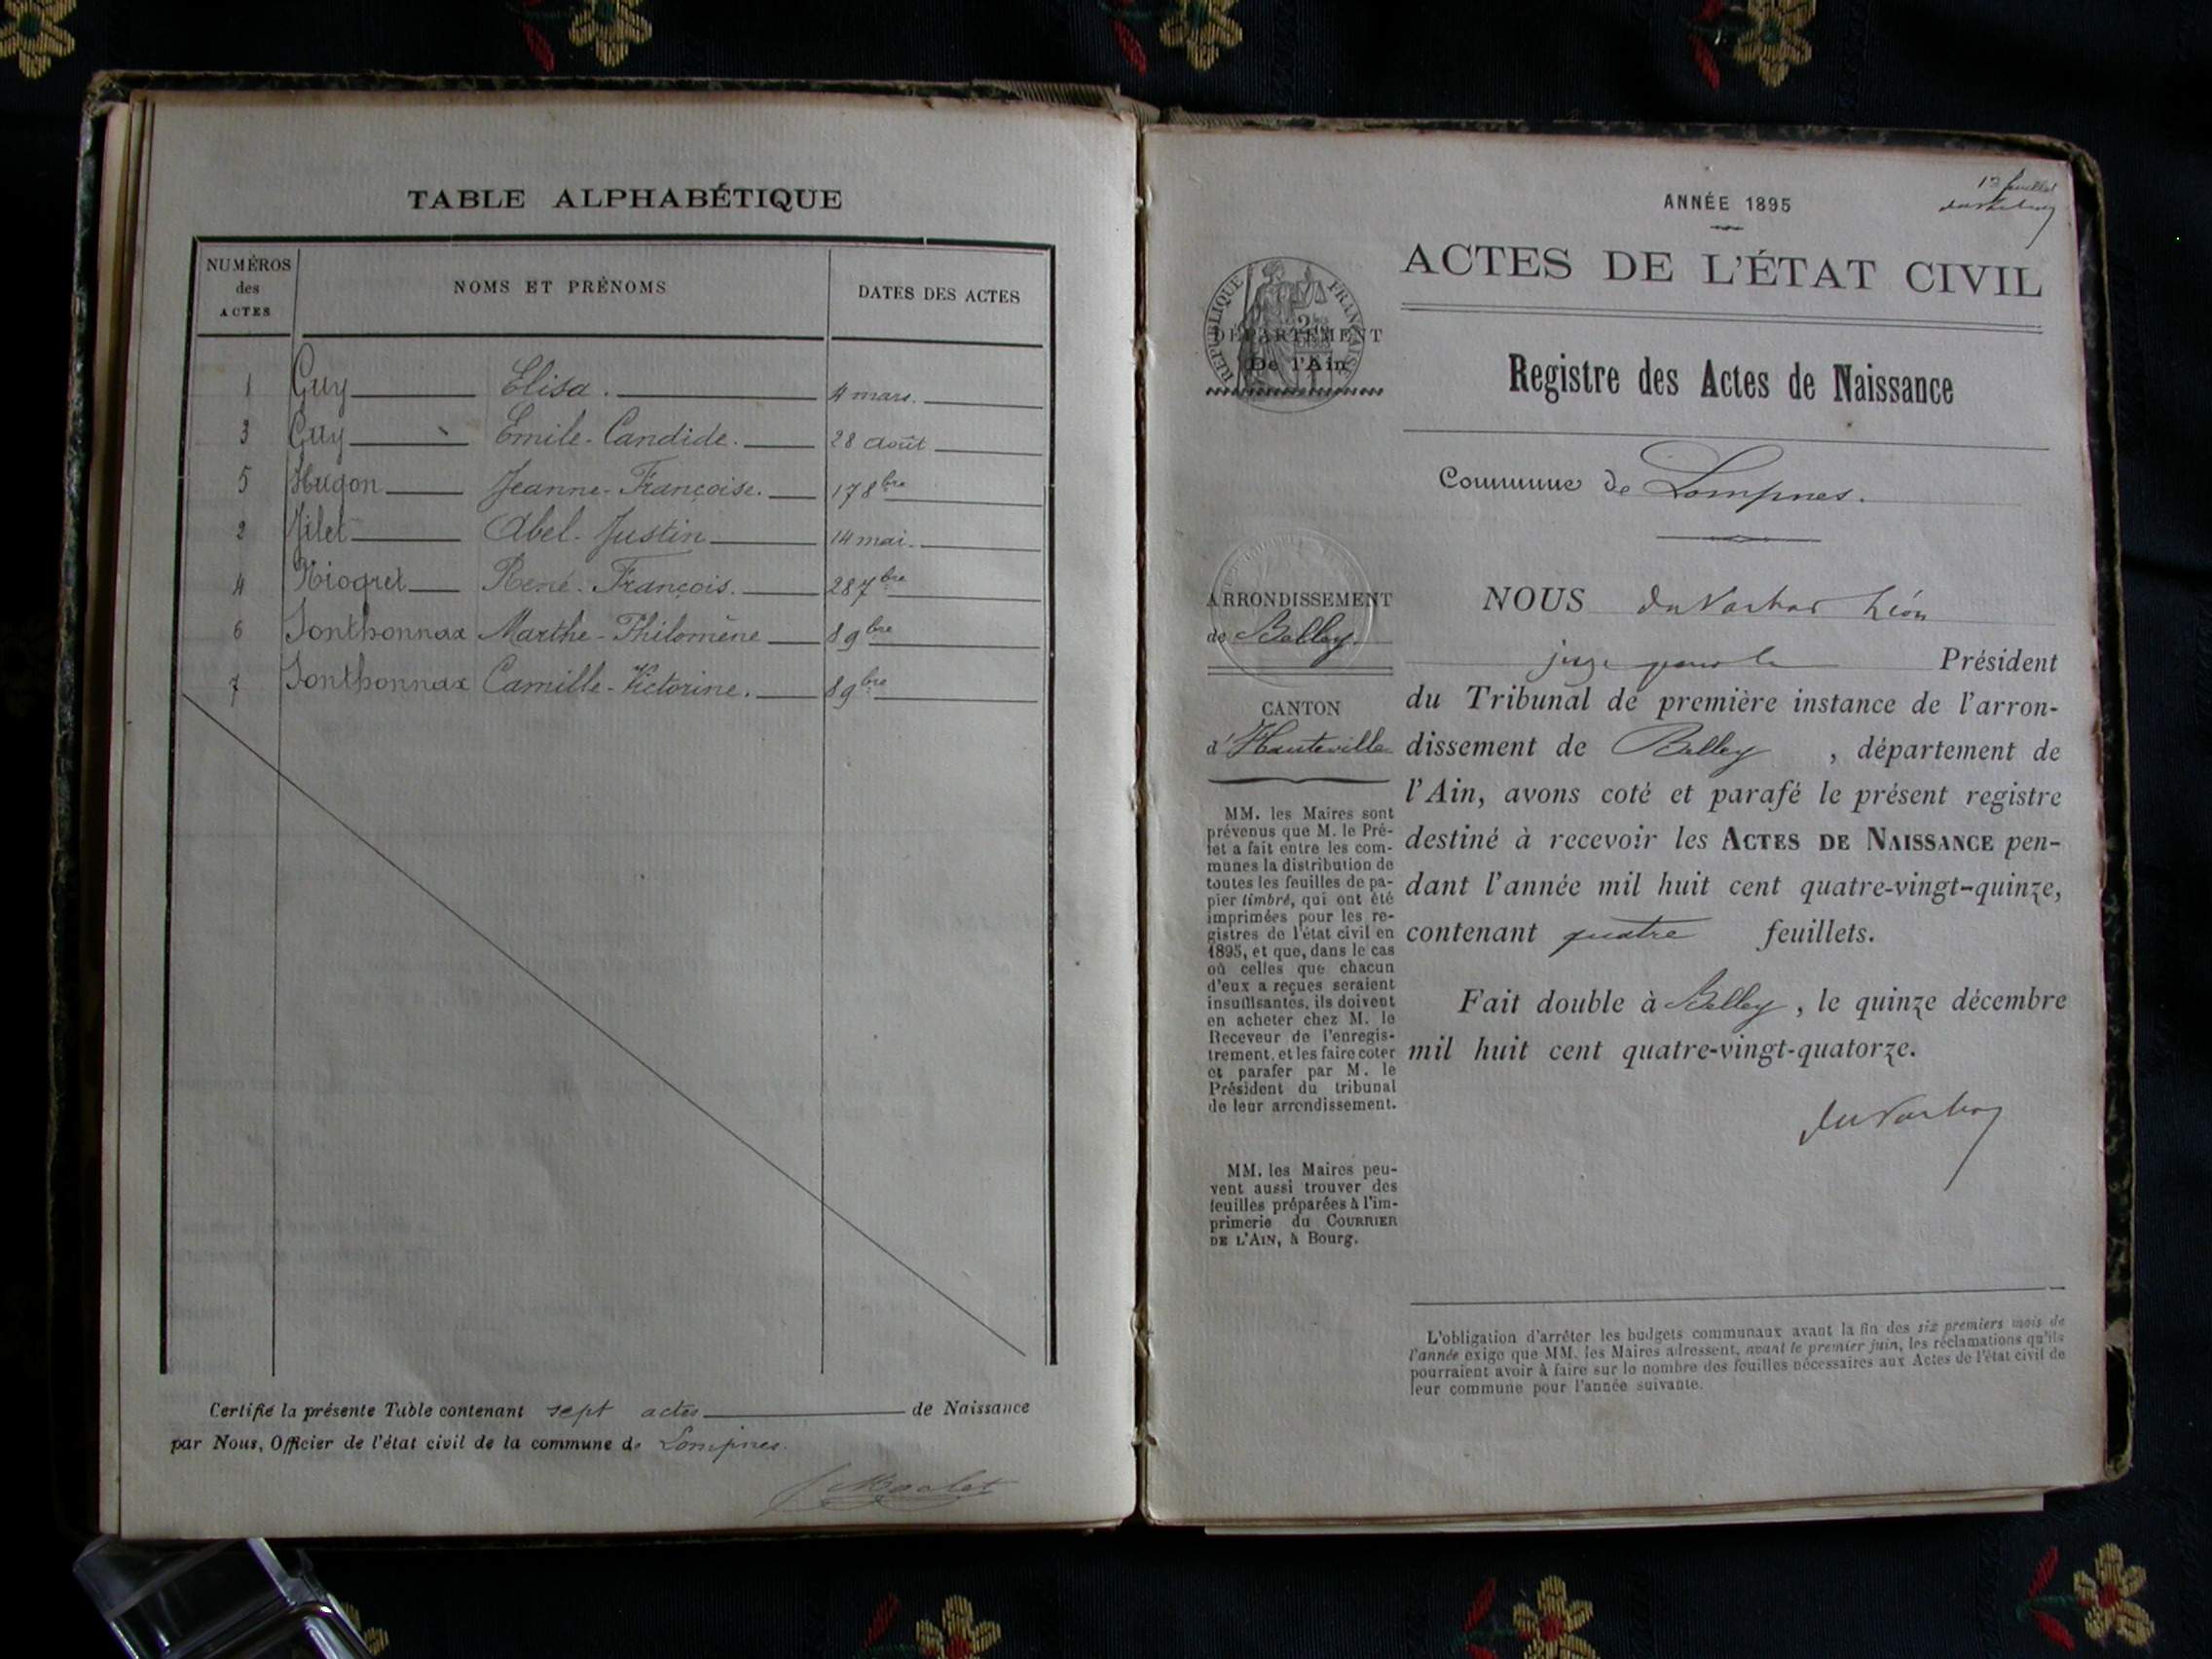 TABLE ALPHABÉTIQUE
NUMÉROS des ACTES NOMS ET PRÉNOMS DATES DES ACTES
1 Guy Elisa. 4 mars.
3 Guy Emile-Candide. 28 août
5 Hugon Jeanne-Françoise. 17 8bre
2 Abel-Justin 14 mai.
4 Niogret René-François. 28 7bre
6 Sonthonnax Marthe-Philomène 8 9bre
7 Sonthonnax Camille-Victorine. 8 9bre
Certifié la présente Table contenant sept actes de Naissance
par Nous, Officier de l'état civil de la commune de Lompnes.
ANNÉE 1895
ACTES DE L'ÉTAT CIVIL
RÉPUBLIQUE FRANÇAISE
DÉPARTEMENT
De l'Ain
Registre des Actes de Naissance
Commune de Lompnes.
ARRONDISSEMENT
de Belley.
CANTON
d'Hauteville
MM. les Maires sont
prévenus que M. le Pré-
fet a fait entre les com-
munes la distribution de
toutes les feuilles de pa-
pier timbré, qui ont été
imprimées pour les re-
gistres de l'état civil en
1895, et que, dans le cas
où celles que chacun
d'eux a reçues seraient
insuffisantes, ils doivent
en acheter chez M. le
Receveur de l'enregis-
trement, et les faire coter
et parafer par M. le
Président du tribunal
de leur arrondissement.
MM. les Maires peu-
vent aussi trouver des
feuilles préparées à l'im-
primerie du COURRIER
DE L'AIN, à Bourg.
NOUS Léon
juge pour le Président
du Tribunal de première instance de l'arron-
dissement de Belley, département de
l'Ain, avons coté et parafé le présent registre
destiné à recevoir les ACTES DE NAISSANCE pen-
dant l'année mil huit cent quatre-vingt-quinze,
contenant quatre feuillets.
Fait double à Belley, le quinze décembre
mil huit cent quatre-vingt-quatorze.
L'obligation d'arrêter les budgets communaux avant la fin des six premiers mois de
l'année exige que MM. les Maires adressent, avant le premier juin, les réclamations qu'ils
pourraient avoir à faire sur le nombre des feuilles nécessaires aux Actes de l'état civil de
leur commune pour l'année suivante.